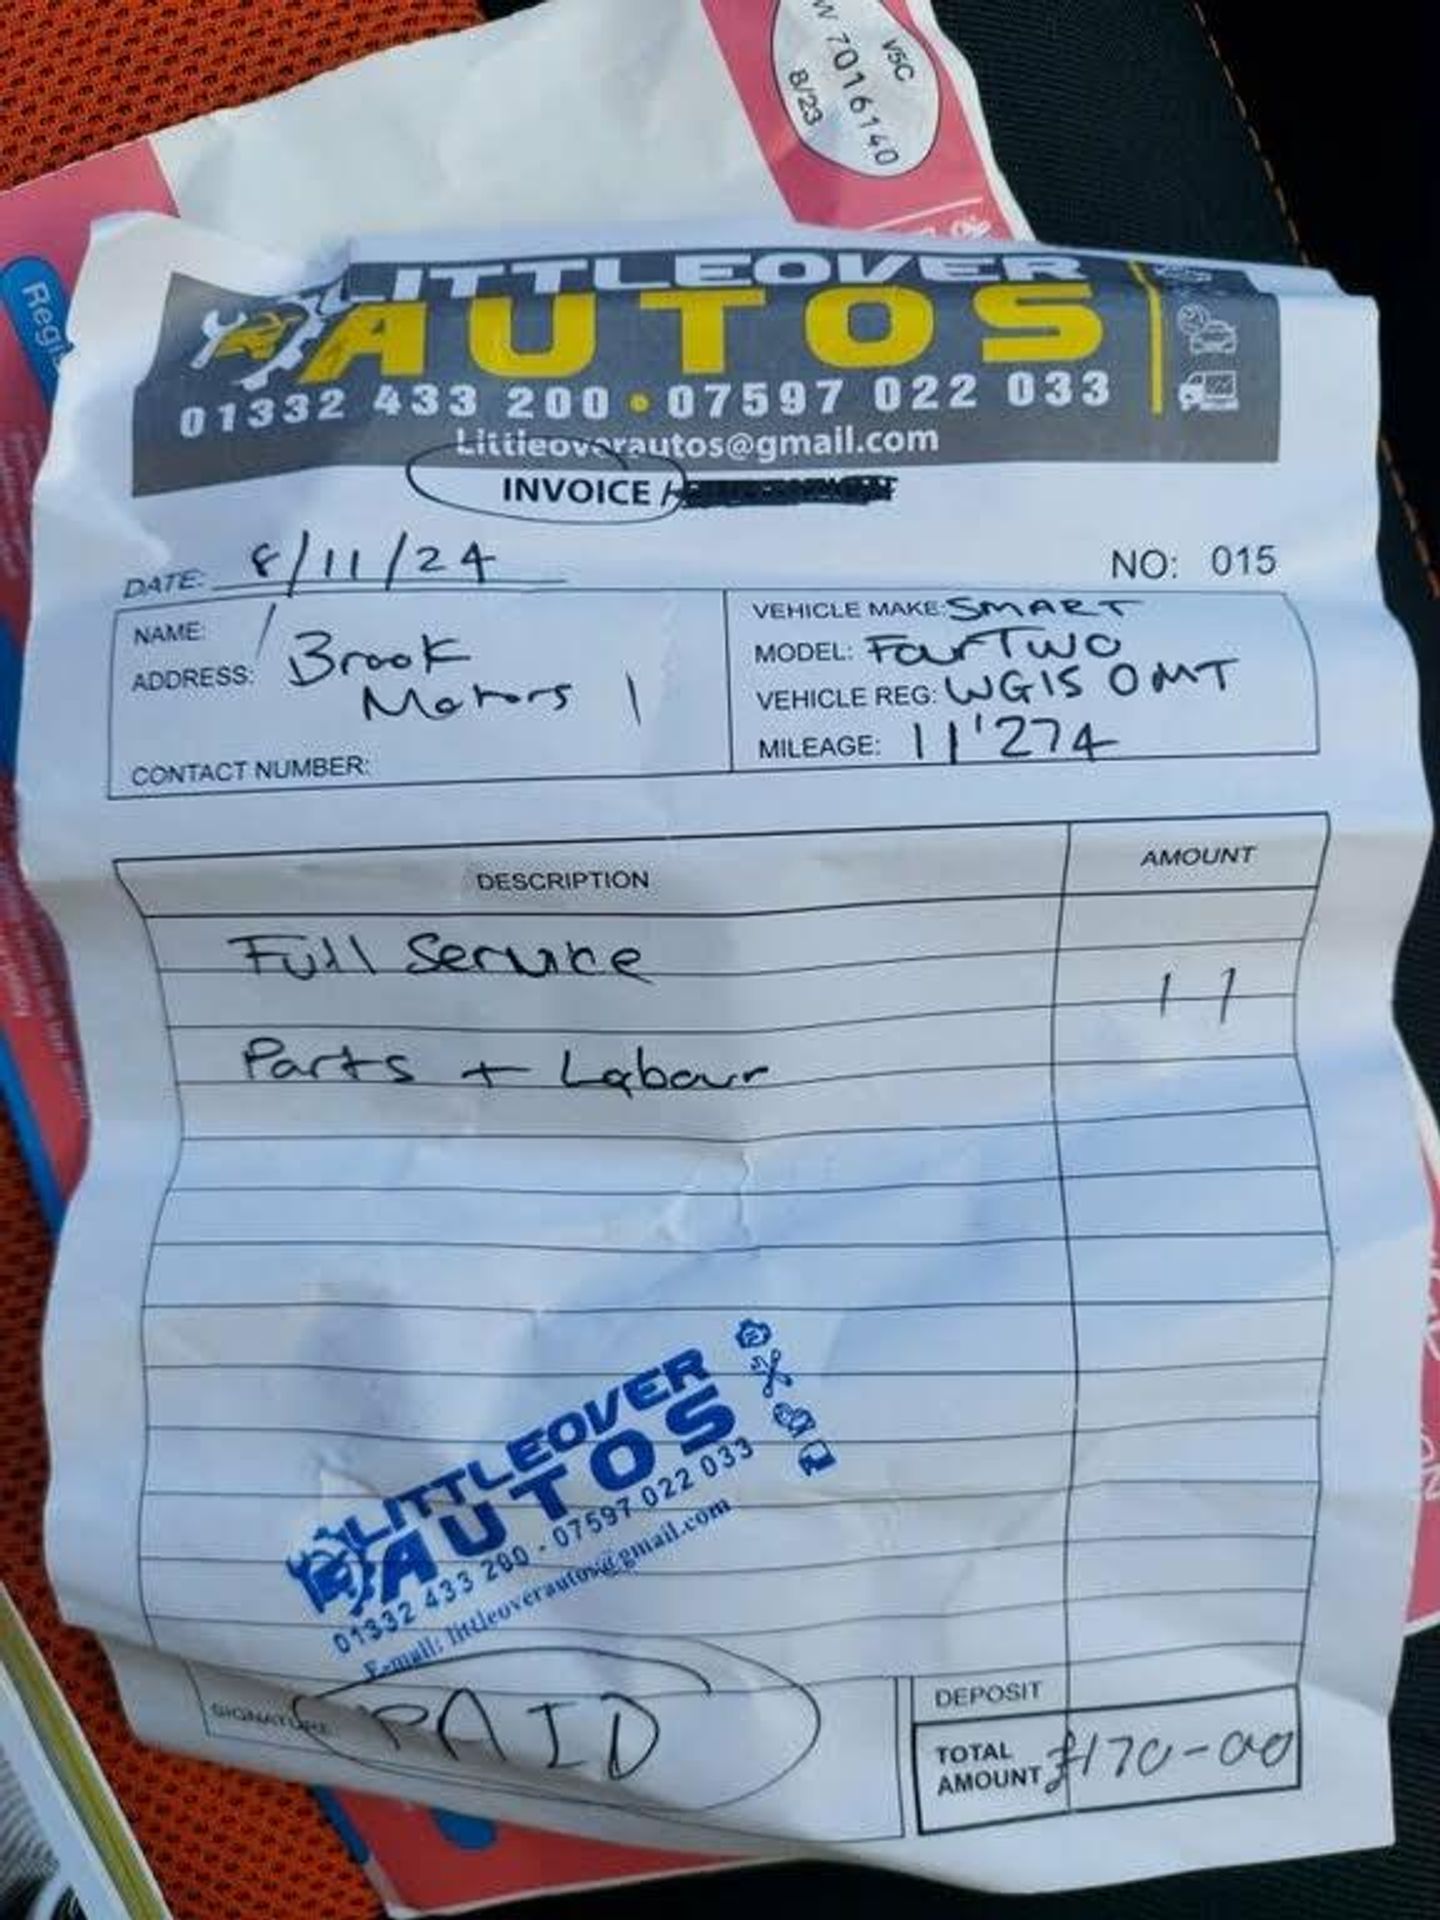 V5C
W 7016140
8/23
Regis
LITTLEOVER
AUTOS
01332 433 200 • 07597 022 033
Littleoverautos@gmail.com
INVOICE /
DATE: 8/11/24
NO: 015
NAME: /
ADDRESS: Brook
Motors
CONTACT NUMBER:
VEHICLE MAKE: SMART
MODEL: FourTwo
VEHICLE REG: WG15 OMT
MILEAGE: 11'274
DESCRIPTION AMOUNT
Full Service
11
Parts + Labour
LITTLEOVER
AUTOS
01332 433 200 - 07597 022 033
E-mail: littleoverautos@gmail.com
SIGNATURE PAID
DEPOSIT
TOTAL
AMOUNT £170-00